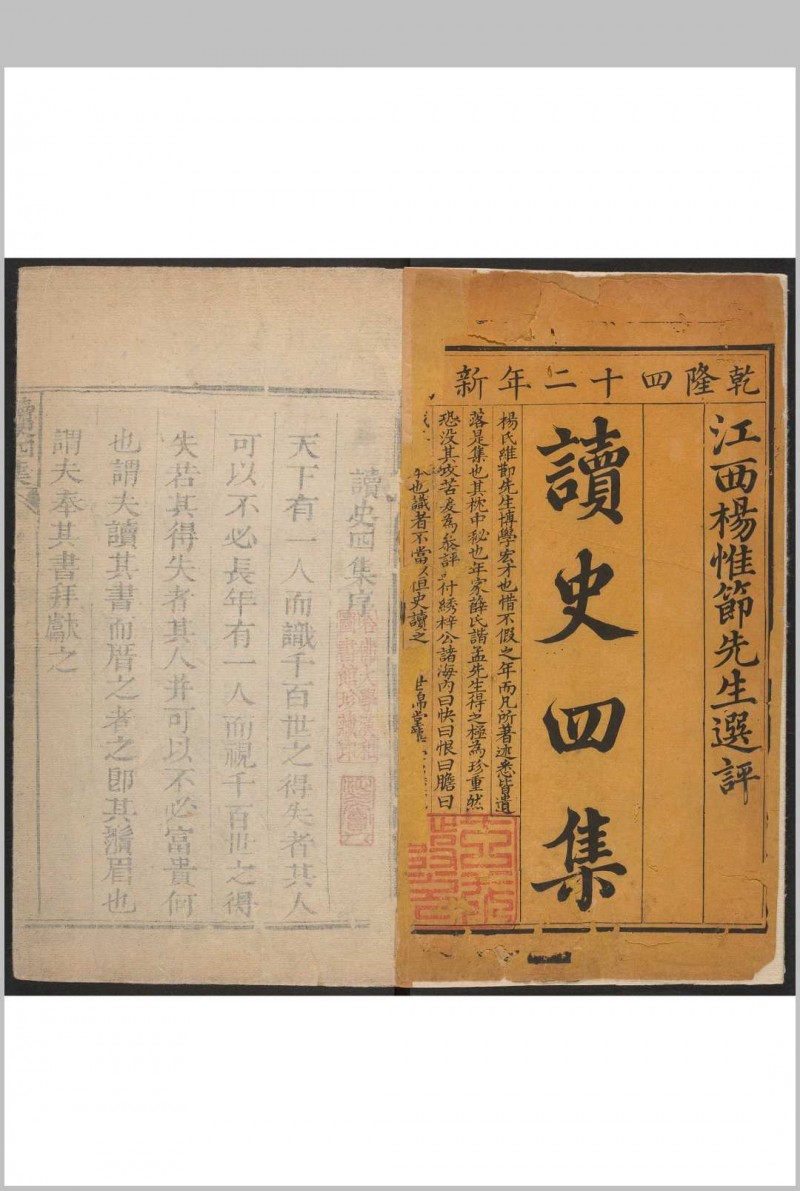 乾隆四十二年新
江西楊惟節先生選評
讀史四集
楊氏維節先生博學宏才也惜不假之年而凡所著述悉皆遺
落是集也其枕中秘也年家薛氏諧孟先生得之極為珍重然
恐没其攻苦爰為叅評付綉梓公諸海內曰快曰恨曰膽曰
也識者不當以但史讀之
讀史四集序
天下有一人而識千百世之得失者其人
可以不必長年有一人而視千百世之得
失若其得失者其人并可以不必富貴何
也謂夫讀其書而厝之者之即其鬚眉也
謂夫奉其書拜獻之
讀四集